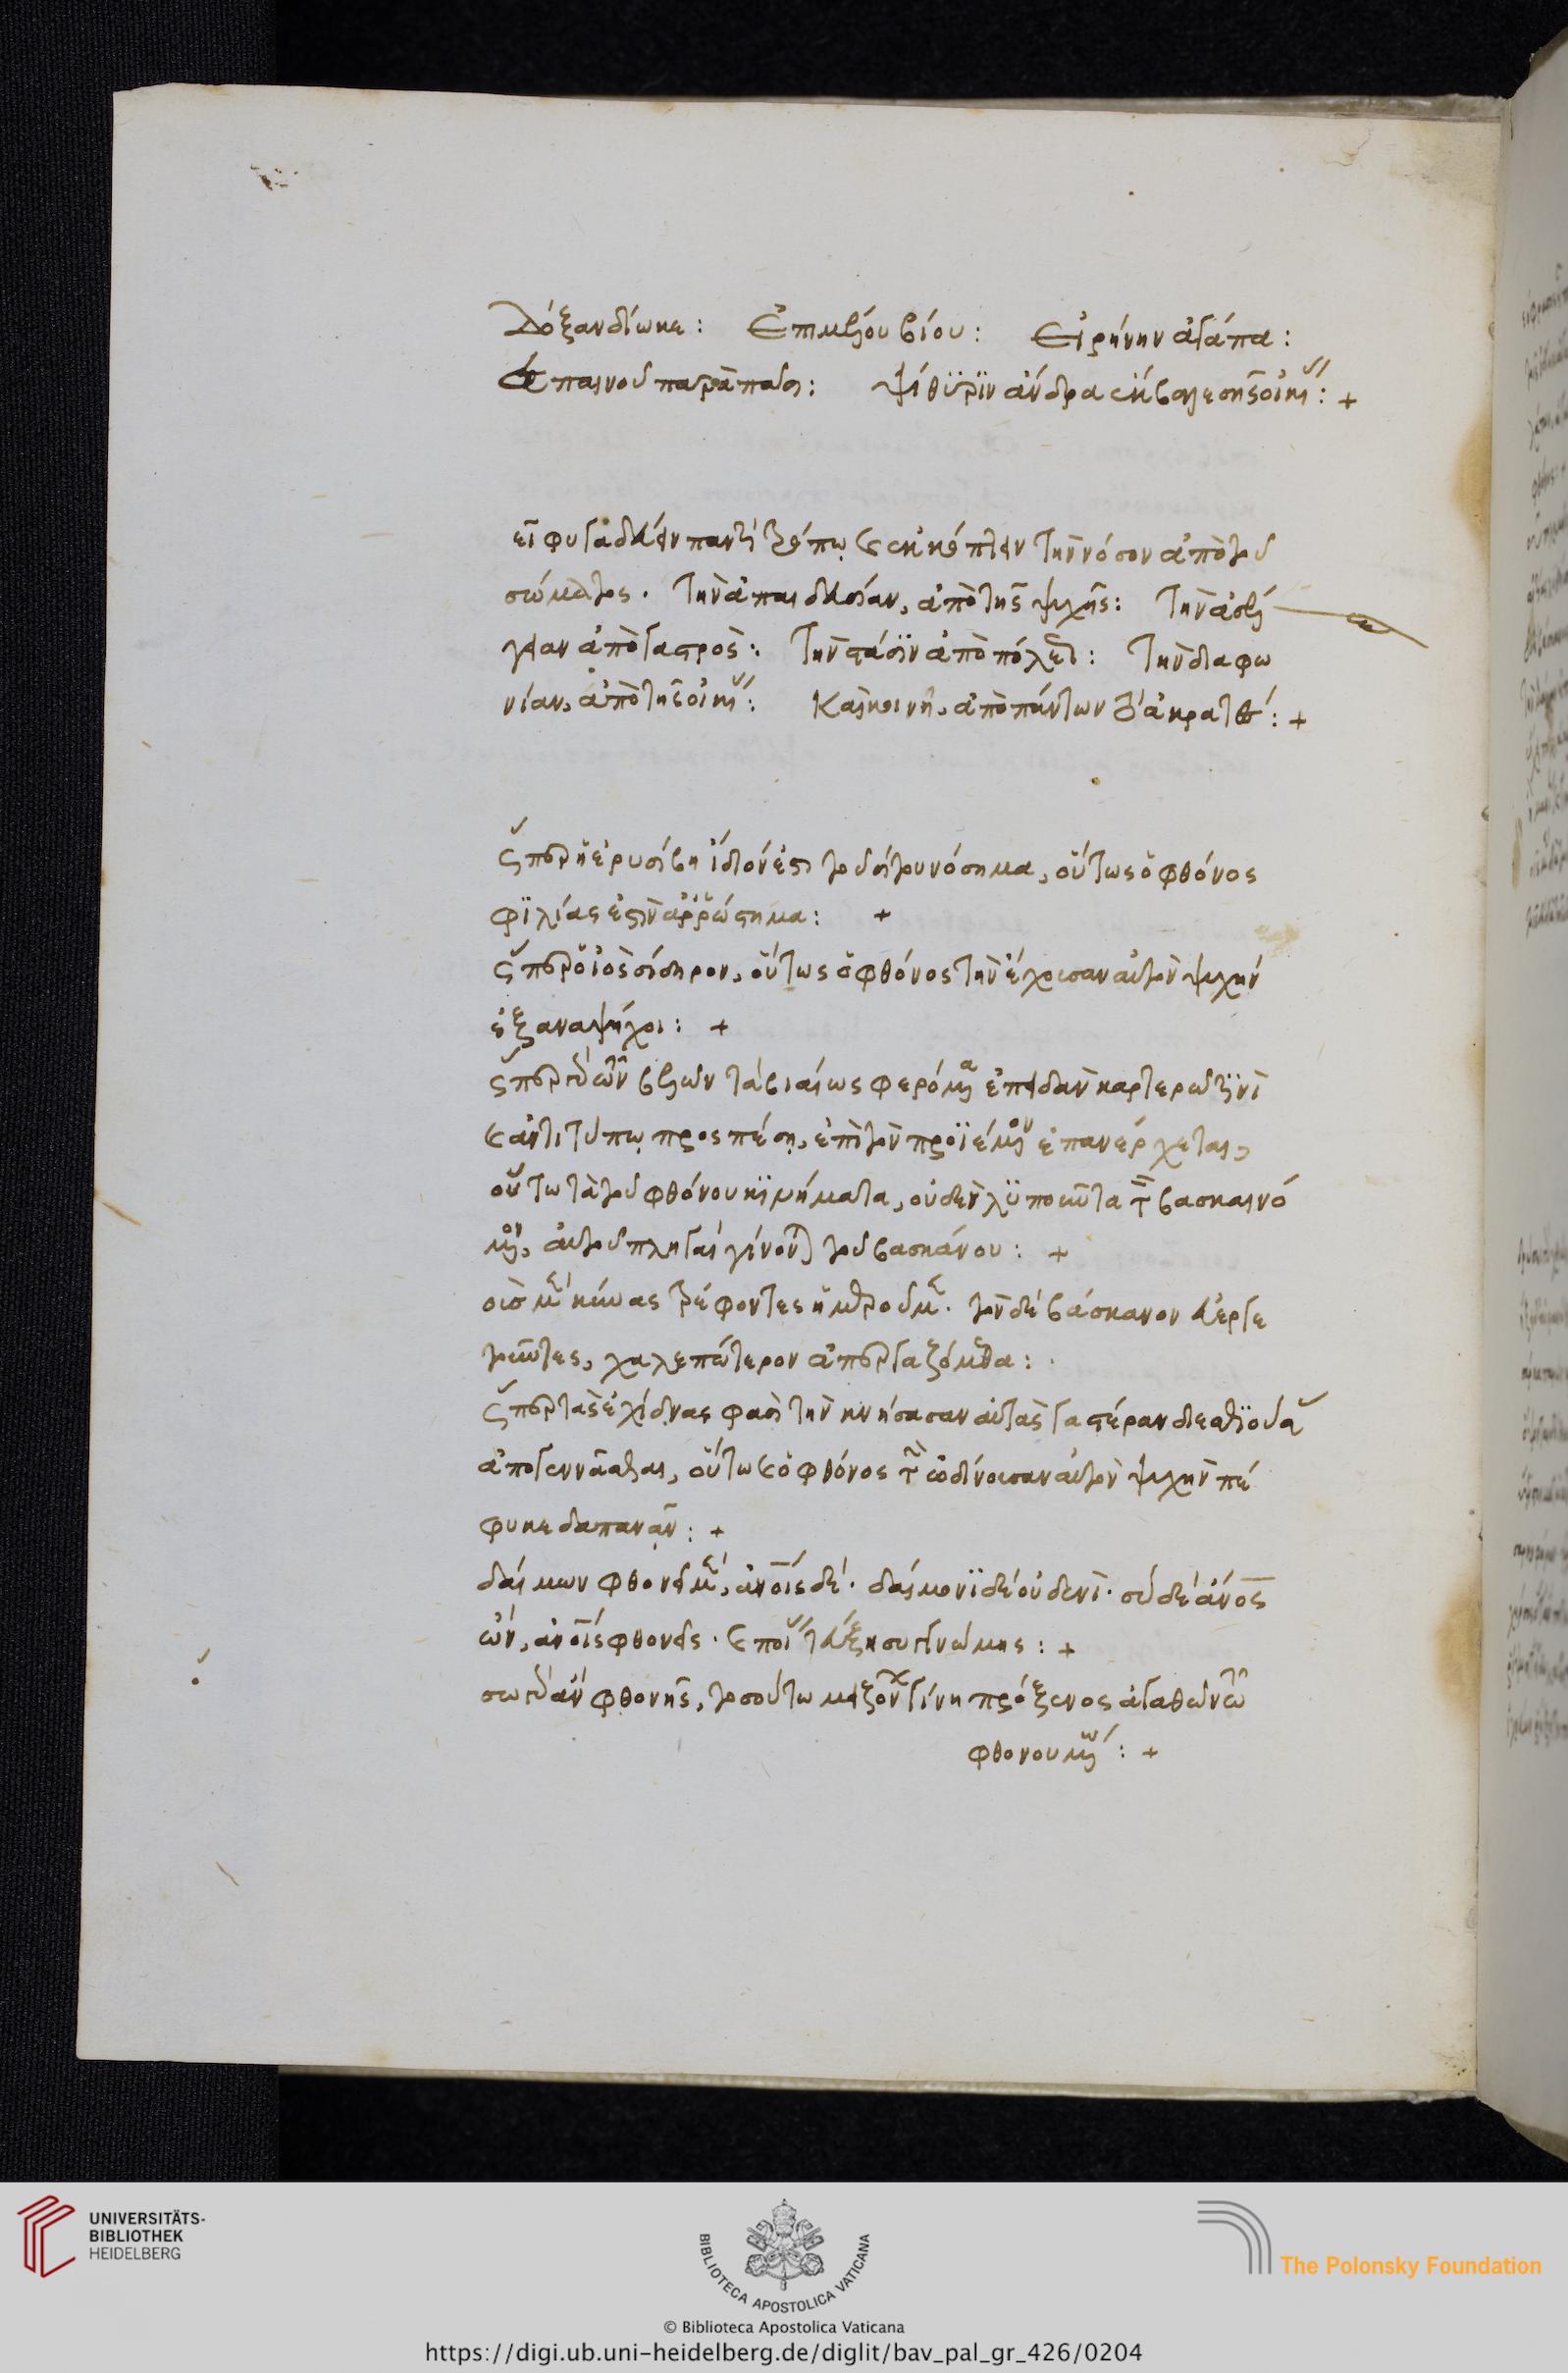 Δόξαν δίωκε: Ἐπιμελοῦ βίου: Εἰρήνην ἀγάπα:
Ἐπαινοῦ παρὰ πᾶσι: ψίθϋρϊν ἄνδρα ἔκβαλε σῆς οἰκίας: +
φυγαδεύειν παντὶ τρόπῳ ἐκκόπτειν τὴν νόσον ἀπὸ τοῦ
σώματος. τὴν ἀπαιδευσίαν, ἀπὸ τῆς ψυχῆς: Τὴν ἀσέλ
γειαν ἀπὸ γαστρὸς: Τὴν στάσϊν ἀπὸ πόλεως: Τὴν διαφω
νίαν, ἀπὸ τῆς οἰκίας: Καὶ κοινῇ, ἀπὸ πάντων τὸ ἀκρατὲς: +
ὥσπερ ἡ ἐρυσίβη ἴδιόν ἐστι τοῦ σίτου νόσημα, οὕτως ὁ φθόνος
φϊλίας ἐστὶν ἀῤῥώστημα: +
ὥσπερ ὁ ἰὸς σίδηρον, οὕτως ὁ φθόνος τὴν ἔχουσαν αὐτὸν ψυχὴν
ἐξαναψήχοι: +
ὥσπερ τῶν βελῶν τὰ βιαίως φερόμενα ἐπειδὰν καρτερῷ τϊνὶ
ἀντιτύπῳ προσπέσῃ, ἐπὶ τὸν προϊέμενον ἐπανέρχεται,
οὕτω τὰ τοῦ φθόνου κϊνήματα, οὐδὲν λϋποῦντα τὸν βασκαινό
μενον, αὐτοῦ πληγαὶ γίνονται τοῦ βασκάνου: +
οἱ μὲν κύνας τρέφοντες ἡμεροῦμεν. τὸν δὲ βάσκανον εὐεργε
τοῦντες, χαλεπώτερον ἀπεργαζόμεθα:
ὥσπερ τὰς ἐχίδνας φασὶ τὴν κυήσασαν αὐτὰς γαστέραν διεσθϊούσας
ἀπογεννᾶσθαι, οὕτω ὁ φθόνος τὴν ὠδίνουσαν αὐτὸν ψυχὴν πέ
φυκε δαπανᾶν: +
δαίμων φθονεῖ μὲν, ἀνοις δέ. δαίμονϊ δὲ οὐδενὶ. σὺ δὲ ἀνος
ὤν, ἀνοις φθονεῖς.
ὅσον ἂν φθονῇς, τοσούτω μειζόνων γίνη πρόξενος ἀγαθῶν τῶ
φθονουμένω: +
UNIVERSITÄTS-
BIBLIOTHEK
HEIDELBERG
BIBLIOTECA APOSTOLICA VATICANA
The Polonsky Foundation
© Biblioteca Apostolica Vaticana
https://digi.ub.uni-heidelberg.de/diglit/bav_pal_gr_426/0204